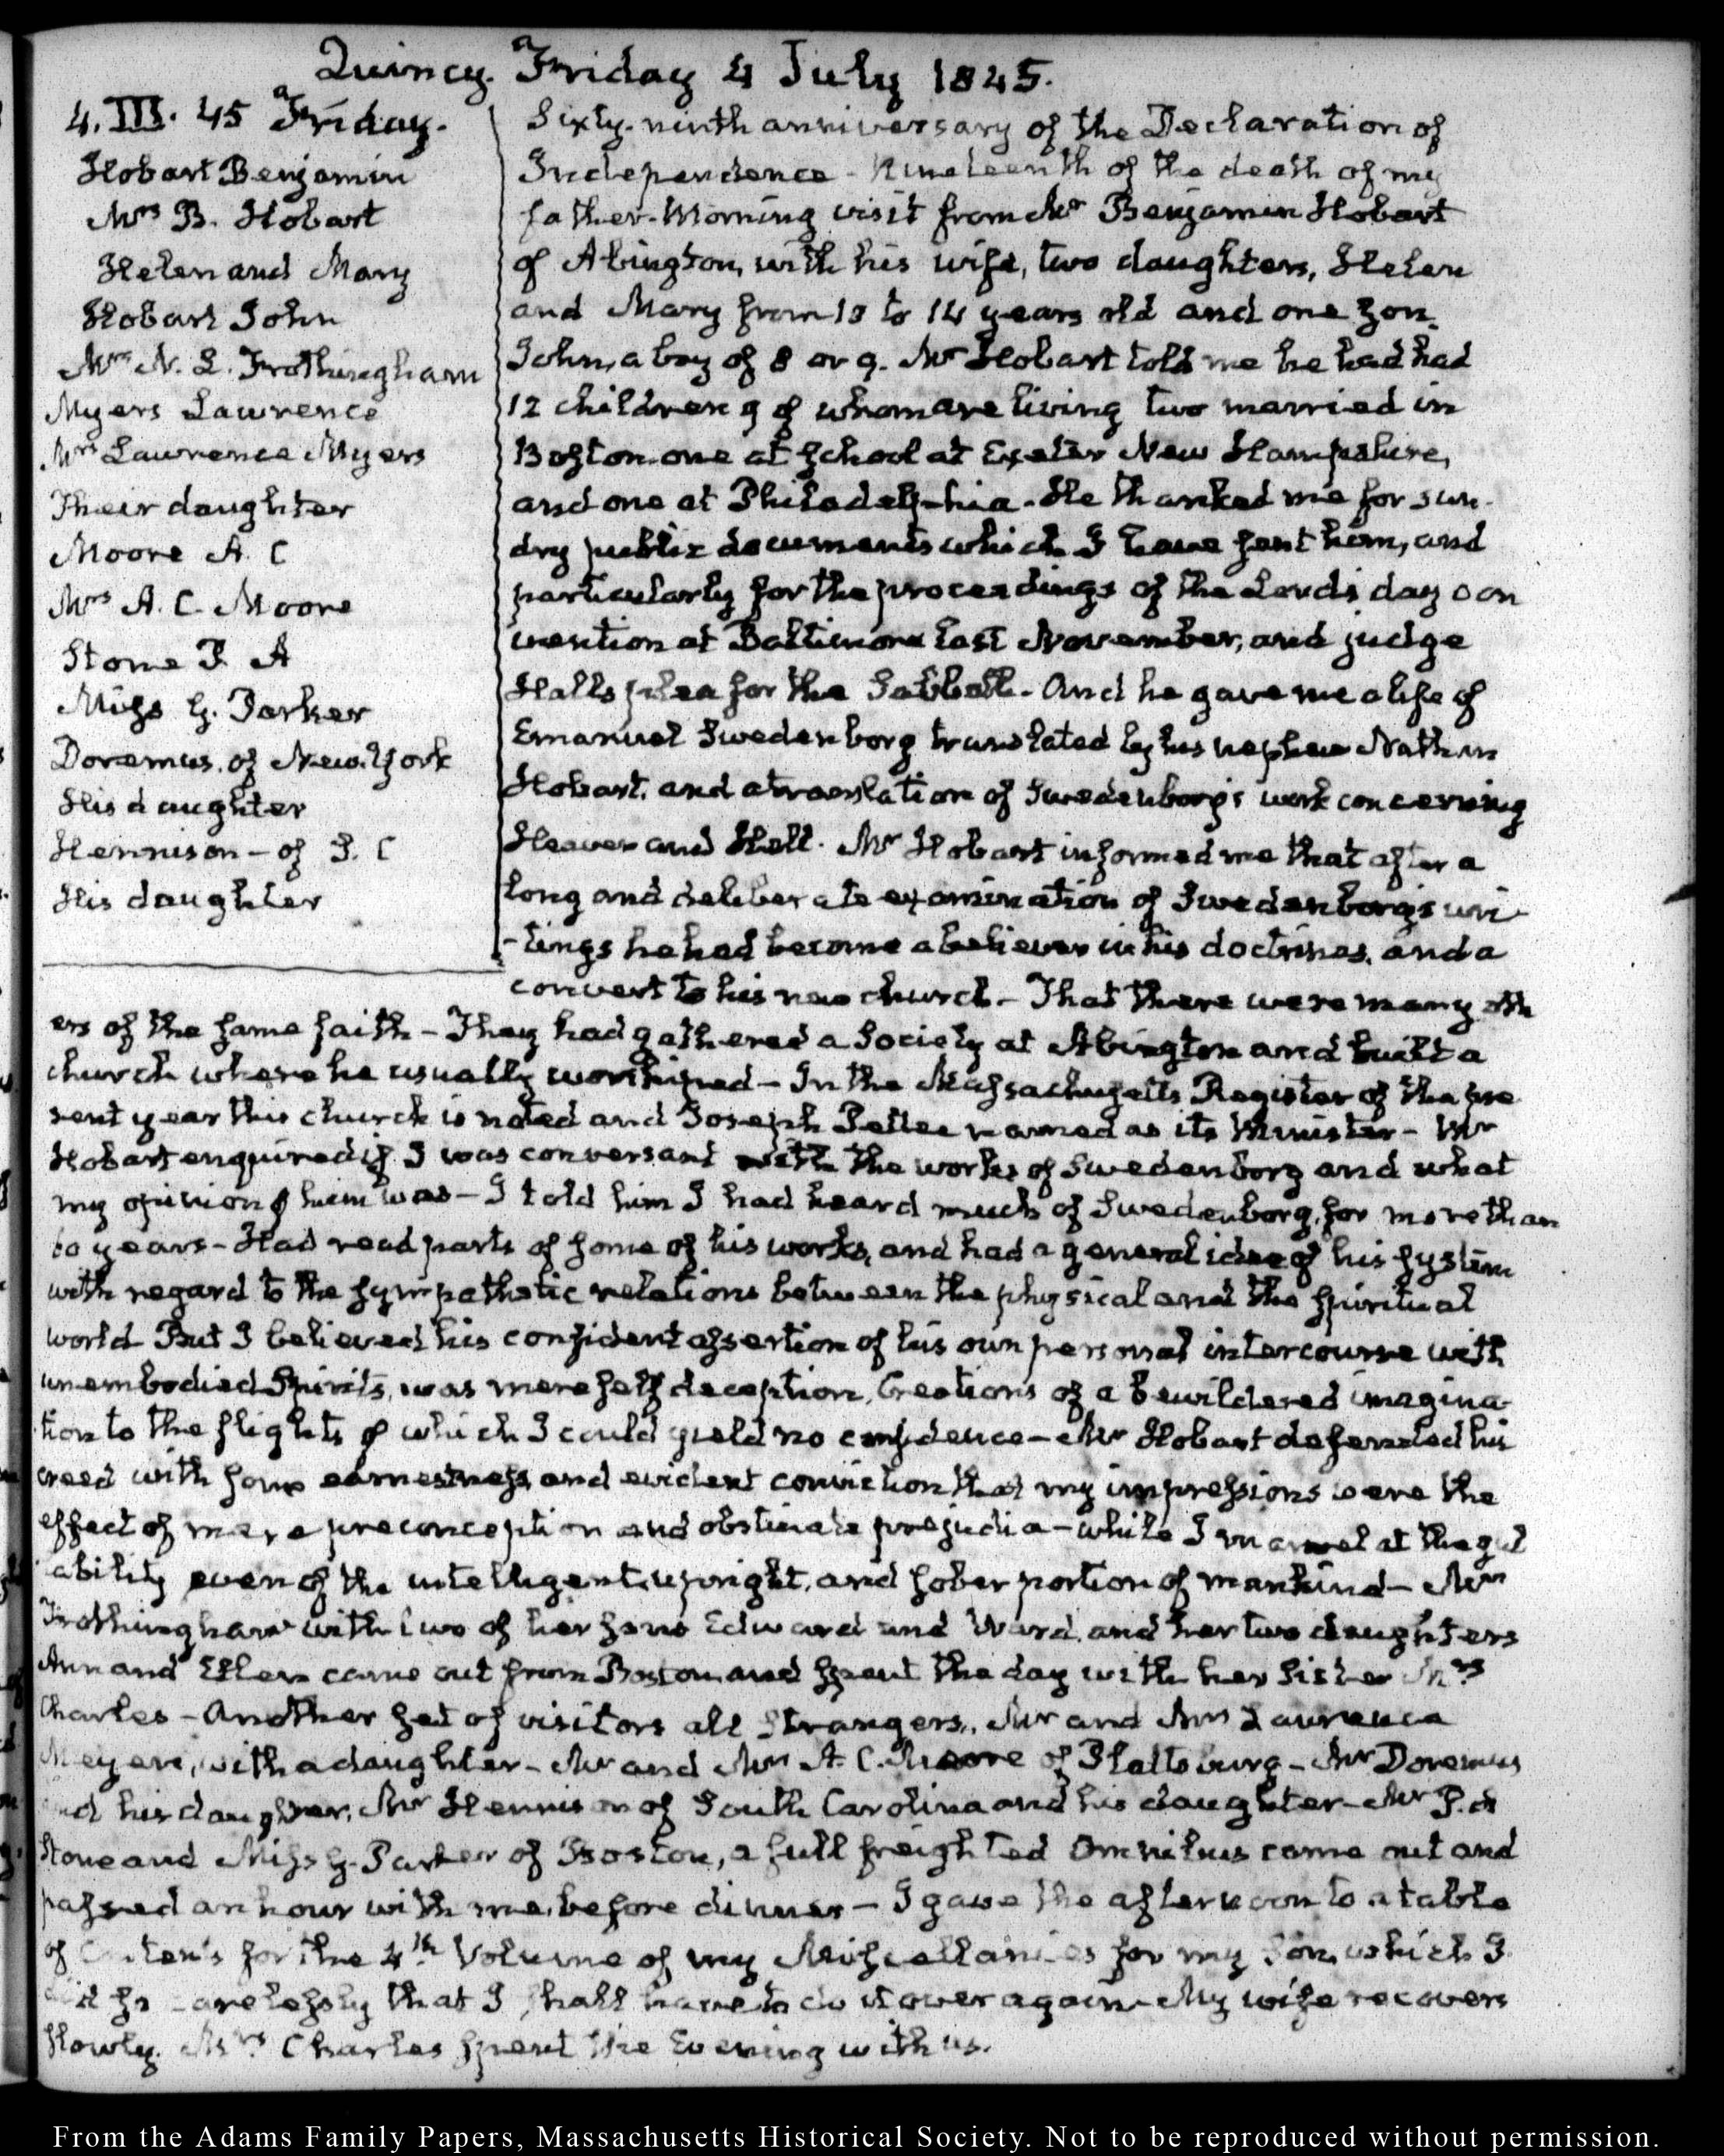 Quincy. Friday 4 July 1845.
4. III. 45 Friday.
Hobart Benjamin
Mrs B. Hobart
Helen and Mary
Hobart John
Mrs N. L. Frothingham
Myers Lawrence
Mrs Lawrence Myers
Their daughter
Moore A. C
Mrs A. C. Moore
Stone P. A
Miss G. Parker
Doremus of New-York
His daughter
Hennison - of S. C
His daughter
Sixty-ninth anniversary of the Declaration of
Independence - Nineteenth of the death of my
father - Morning visit from Mr Benjamin Hobart
of Abington, with his wife, two daughters, Helen
and Mary from 18 to 14 years old and one son.
John, a boy of 8 or 9. Mr Hobart told me he had had
12 children 9 of whom are living two married in
Boston one at School at Exeter New Hampshire,
and one at Philadelphia. He thanked me for sun-
dry public documents which I have sent him, and
particularly for the proceedings of the Lord's day con
vention at Baltimore last November, and judge
Halls plea for the Sabbath - And he gave me a life of
Emanuel Swedenborg translated by his nephew Nathan
Hobart, and a translation of Swedenborg's work concerning
Heaven and Hell. Mr Hobart informed me that after a
long and deliberate examination of Swedenborg's wri-
-tings he had become a believer in his doctrines, and a
convert to his new church - That there were many oth
ers of the same faith - They had gathered a Society at Abington and built a
church where he usually worshipped - In the Massachusetts Register of the pre
sent year this church is noted and Joseph Pettee named as its Minister - Mr
Hobart enquired if I was conversant with the works of Swedenborg and what
my opinion of him was - I told him I had heard much of Swedenborg, for more than
60 years - Had read parts of some of his works, and had a general idea of his system
with regard to the sympathetic relations between the physical and the spiritual
world But I believed his confident assertion of his own personal intercourse with
unembodied Spirits, was mere self deception, Creations of a bewildered imagina-
tion to the flights of which I could yield no confidence - Mr Hobart defended his
creed with some earnestness, and evident conviction that my impressions were the
effect of mere preconception and obstinate prejudice - while I marvel at the gul
ability even of the intelligent, upright, and sober portion of mankind - Mrs
Frothingham with two of her sons Edward and Ward, and her two daughters
Ann and Ellen came out from Boston and spent the day with her Sister Mrs
Charles - Another set of visitors all Strangers, Mr and Mrs Lawrence
Meyers, with a daughter - Mr and Mrs A. C. Moore of Plattsburg - Mr Doremus
and his daughter, Mr Hennison of South Carolina and his daughter - Mr P. A
Stone and Miss G. Parker of Boston, a full freighted Omnibus came out and
passed an hour with me, before dinner - I gave the afternoon to a table
of Contents for the 4th Volume of my Miscellanies for my Son, which I
did so carelessly that I shall have to do it over again - My wife recovers
slowly. Mrs Charles spent the Evening with us.
From the Adams Family Papers, Massachusetts Historical Society. Not to be reproduced without permission.